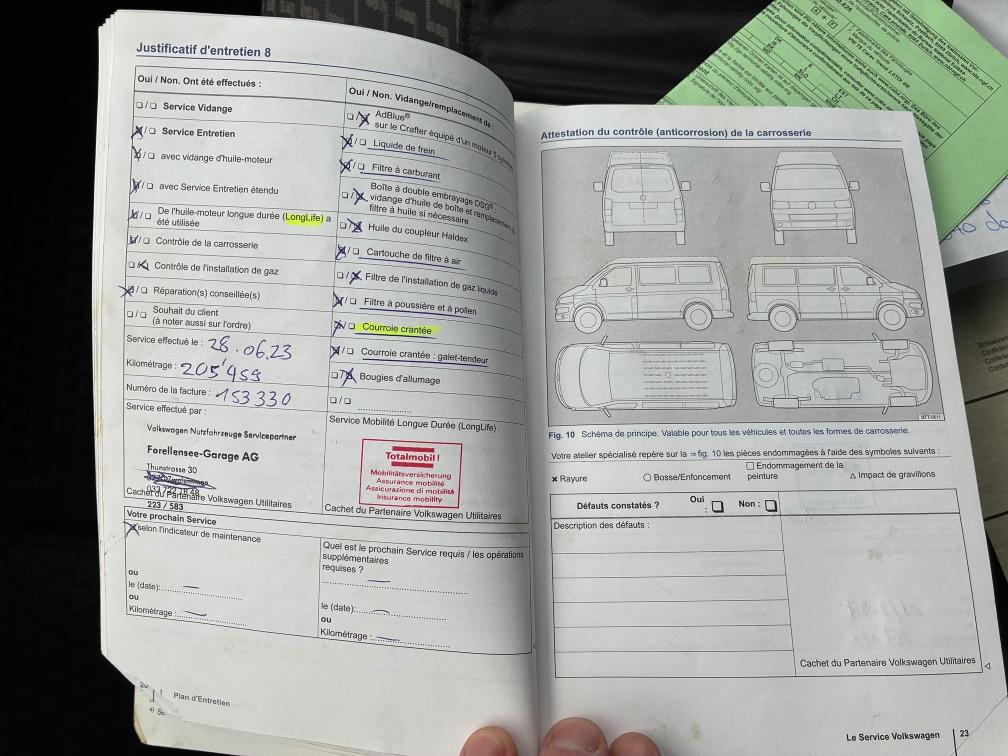 Justificatif d'entretien 8
Oui / Non. Ont été effectués :
❑/❑ Service Vidange
❑/❑ Service Entretien
❑/❑ avec vidange d'huile-moteur
❑/❑ avec Service Entretien étendu
❑/❑ De l'huile-moteur longue durée (LongLife) a
été utilisée
❑/❑ Contrôle de la carrosserie
❑/❑ Contrôle de l'installation de gaz
❑/❑ Réparation(s) conseillée(s)
❑/❑ Souhait du client
(à noter aussi sur l'ordre)
Service effectué le : 28.06.23
Kilométrage : 205'459
Numéro de la facture : 153330
Service effectué par :
Volkswagen Nutzfahrzeuge Servicepartner
Forellensee-Garage AG
Thunstrasse 30
Cachet du Partenaire Volkswagen Utilitaires
223 / 583
Oui / Non. Vidange/remplacement de :
❑/❑ AdBlue®
sur le Crafter équipé d'un moteur 5 cylindres
❑/❑ Liquide de frein
❑/❑ Filtre à carburant
❑/❑ Boîte à double embrayage DSG® :
vidange d'huile de boîte et remplacement du
filtre à huile si nécessaire
❑/❑ Huile du coupleur Haldex
❑/❑ Cartouche de filtre à air
❑/❑ Filtre de l'installation de gaz liquide
❑/❑ Filtre à poussière et à pollen
❑/❑ Courroie crantée
❑/❑ Courroie crantée : galet-tendeur
❑/❑ Bougies d'allumage
❑/❑ ....................
Service Mobilité Longue Durée (LongLife) :
Totalmobil!
Mobilitätsversicherung
Assurance mobilité
Assicurazione di mobilità
Insurance mobility
Cachet du Partenaire Volkswagen Utilitaires
Votre prochain Service
selon l'indicateur de maintenance
ou
le (date):....................
ou
Kilométrage :....................
Quel est le prochain Service requis / les opérations
supplémentaires
requises ?
....................
le (date):....................
ou
Kilométrage :....................
Plan d'Entretien
Attestation du contrôle (anticorrosion) de la carrosserie
B7T-0511
Fig. 10 Schéma de principe. Valable pour tous les véhicules et toutes les formes de carrosserie.
Votre atelier spécialisé repère sur la ⇒ fig. 10 les pièces endommagées à l'aide des symboles suivants :
× Rayure
○ Bosse/Enfoncement
□ Endommagement de la
peinture
△ Impact de gravillons
Défauts constatés ?
Oui
: ❑
Non : ❑
Description des défauts :
Cachet du Partenaire Volkswagen Utilitaires
Le Service Volkswagen 23